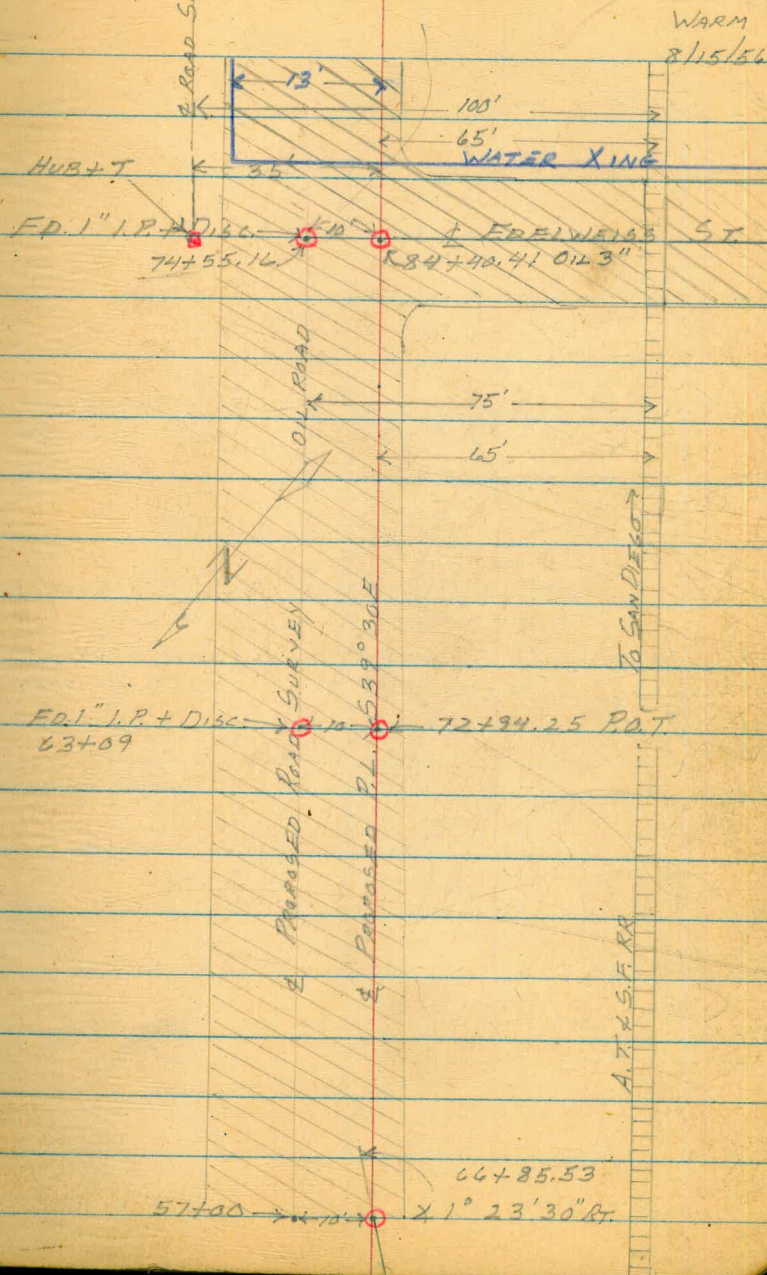 WARM
8/15/56
℄ ROAD S
13'
100'
65'
WATER XING
HUB + T
35'
FD. 1" I.P. + DISC.
10'
℄ EDELWEISS ST.
74+55.16
84+40.41 OIL 3"
OIL ROAD
75'
65'
TO SAN DIEGO
℄ PROPOSED ROAD SURVEY
℄ PROPOSED P.L. S39°30E
FD. 1" I.P. + DISC.
10
72+94.25 P.O.T.
63+09
A.T. & S.F. RR
66+85.53
57+00
10'
∡ 1° 23' 30" RT.